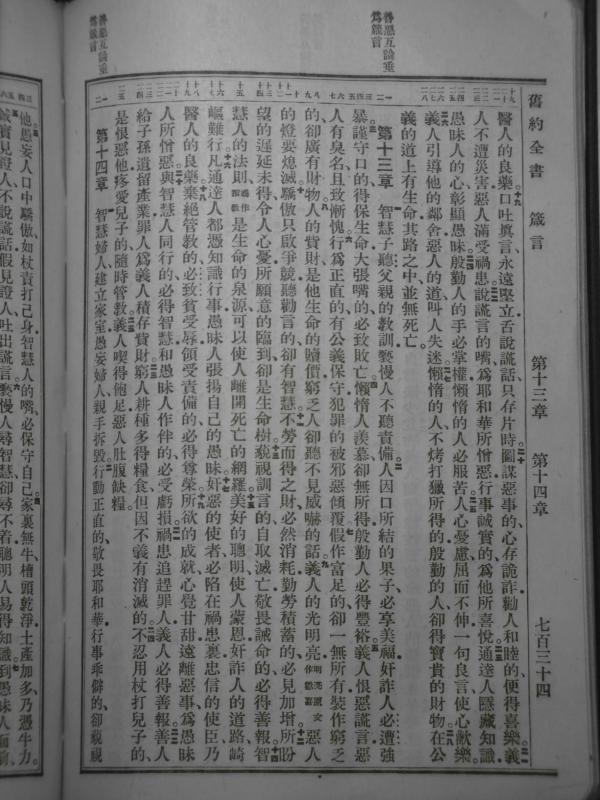 舊約全書 箴言 第十三章 第十四章 七百三十四
善惡互論垂
爲箴言
醫人的良藥口吐眞言永遠堅立舌說謊話只存片時圖謀惡事的心存詭詐勸人和睦的便得喜樂義
人不遭災害惡人滿受禍患說謊言的嘴爲耶和華所憎惡行事誠實的爲他所喜悅通達人隱藏知識
愚昧人的心彰顯愚昧殷勤人的手必掌權懶惰的人必服苦人心憂慮屈而不伸一句良言使心歡樂
義人引導他的鄰舍惡人的道叫人失迷懶惰的人不烤打獵所得的殷勤的人卻得寶貴的財物在公
義的道上有生命其路之中並無死亡。
第十三章 智慧子聽父親的教訓褻慢人不聽責備人因口所結的果子必享美福奸詐人必遭強
暴謹守口的得保生命大張嘴的必致敗亡懶惰人羨慕卻無所得殷勤人必得豐裕義人恨惡謊言惡
人有臭名且致慚愧行爲正直的有公義保守犯罪的被邪惡傾覆假作富足的卻一無所有裝作窮乏
的卻廣有財物人的貲財是他生命的贖價窮乏人卻聽不見威嚇的話義人的光明亮明亮原文作歡喜惡人
的燈要熄滅驕傲只啟爭競聽勸言的卻有智慧不勞而得之財必然消耗勤勞積蓄的必見加增所盼
望的遲延未得令人心憂所願意的臨到卻是生命樹藐視訓言的自取滅亡敬畏誡命的必得善報智
慧人的法則是生命的泉源可以使人離開死亡的網羅美好的聰明使人蒙恩奸詐人的道路崎
嶇難行凡通達人都憑知識行事愚昧人張揚自己的愚昧奸惡的使者必陷在禍患裏忠信的使臣乃
醫人的良藥棄絕管教的必致貧受辱領受責備的必得尊榮所欲的成就心覺甘甜遠離惡事爲愚昧
人所憎惡與智慧人同行的必得智慧和愚昧人作伴的必受虧損禍患追趕罪人義人必得善報善人
給子孫遺留產業罪人爲義人積存貲財窮人耕種多得糧食但因不義有消滅的不忍用杖打兒子的
是恨惡他疼愛兒子的隨時管教義人喫得飽足惡人肚腹缺糧。
第十四章 智慧婦人建立家室愚妄婦人親手拆毀行動正直的敬畏耶和華行事乖僻的卻藐視
善惡互論垂
爲箴言
他愚妄人口中驕傲如杖責打己身智慧人的嘴必保守自己家裏無牛槽頭乾淨土產加多乃憑牛力
誠實見證人不說謊話假見證人吐出謊言褻慢人尋智慧卻尋不着聰明人易得知識到愚昧人面前